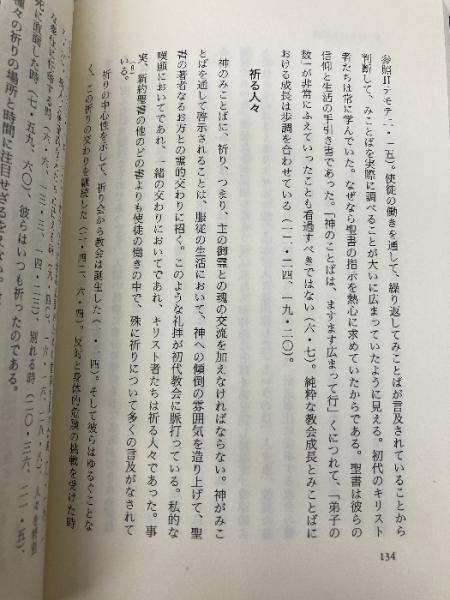 参照Ⅱテモテ二・一五)。使徒の働きを通して、繰り返してみことばが言及されていることから
判断して、みことばを実際に調べることが大いに広まっていたように見える。初代のキリスト
者たちは常に学んでいた。なぜなら聖書の指示を熱心に求めていたからである。聖書は彼らの
信仰と生活の手引き書であった。「神のことばは、ますます広まって行」くにつれて、「弟子の
数」が非常にふえていったことも看過すべきではない(六・七)。純粋な教会成長とみことばに
おける成長は歩調を合わせている(一二・二四、一九・二〇)。
祈る人々
神のみことばに、祈り、つまり、主の御霊との魂の交流を加えなければならない。神がみこ
とばを通して啓示されることは、服従の生活において、神への傾倒の雰囲気を造り上げて、聖
書の著者なるお方との霊的交わりに招く。このような礼拝が初代教会に脈打っている。私的な
嘆願においてであれ、一緒の交わりにおいてであれ、キリスト者たちは祈る人々であった。事
実、新約聖書の他のどの書よりも使徒の働きの中で、殊に祈りについて多くの言及がなされて
いる。
祈りの中心性を示して、祈り会から教会は誕生した(一・一四)。そして彼らはゆるぐことな
く、この祈りの交わりを継続した(一・四二、六・四)。反対と身体的危険の挑戦を受けた時
死に直面した時(七・五九、六〇)、彼らはいつも祈ったのである。
種々の祈りの場所と時間に注目せざるをえない。
134